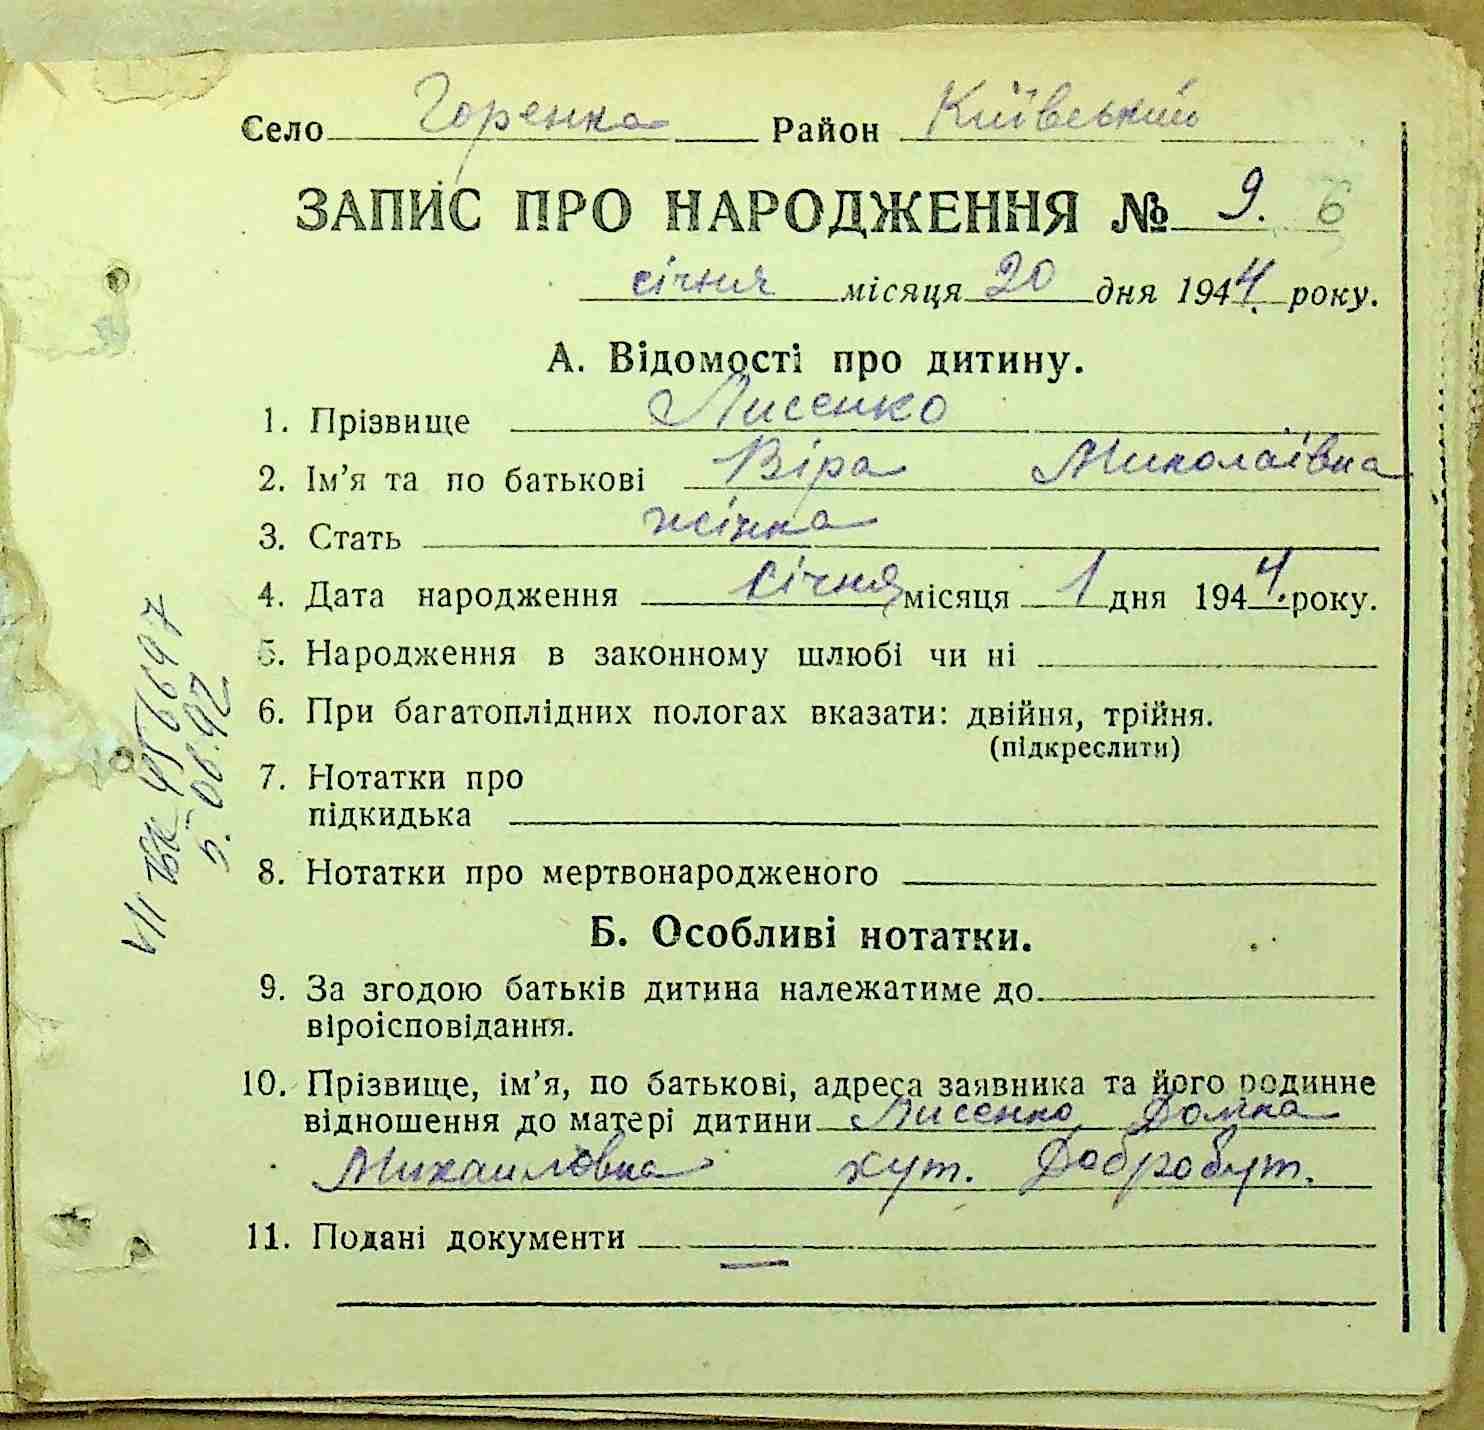 Село Горенка Район Київський
ЗАПИС ПРО НАРОДЖЕННЯ № 9. 6
січня місяця 20 дня 1944. року.
А. Відомості про дитину.
1. Прізвище Лисенко
2. Ім'я та по батькові Віра Миколаївна
3. Стать жінка
4. Дата народження січня місяця 1 дня 1944. року.
5. Народження в законному шлюбі чи ні
6. При багатоплідних пологах вказати: двійня, трійня.
(підкреслити)
7. Нотатки про
підкидька
8. Нотатки про мертвонародженого
Б. Особливі нотатки.
9. За згодою батьків дитина належатиме до
віроісповідання.
10. Прізвище, ім'я, по батькові, адреса заявника та його родинне
відношення до матері дитини Лисенко Домка
Михаиловна хут. Добробут.
11. Подані документи —
VII 456697
5.06.92